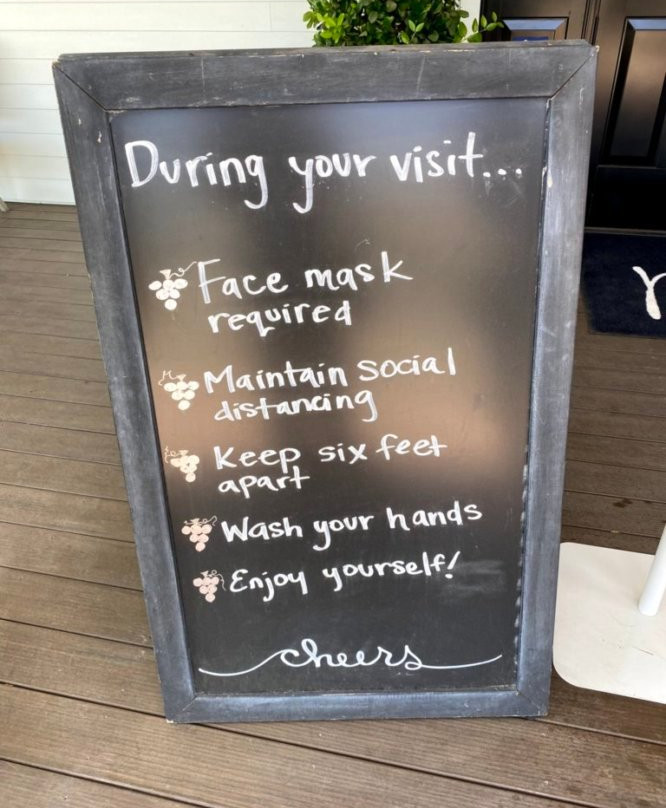 During your visit...
Face mask
required
Maintain social
distancing
Keep six feet
apart
Wash your hands
Enjoy yourself!
cheers